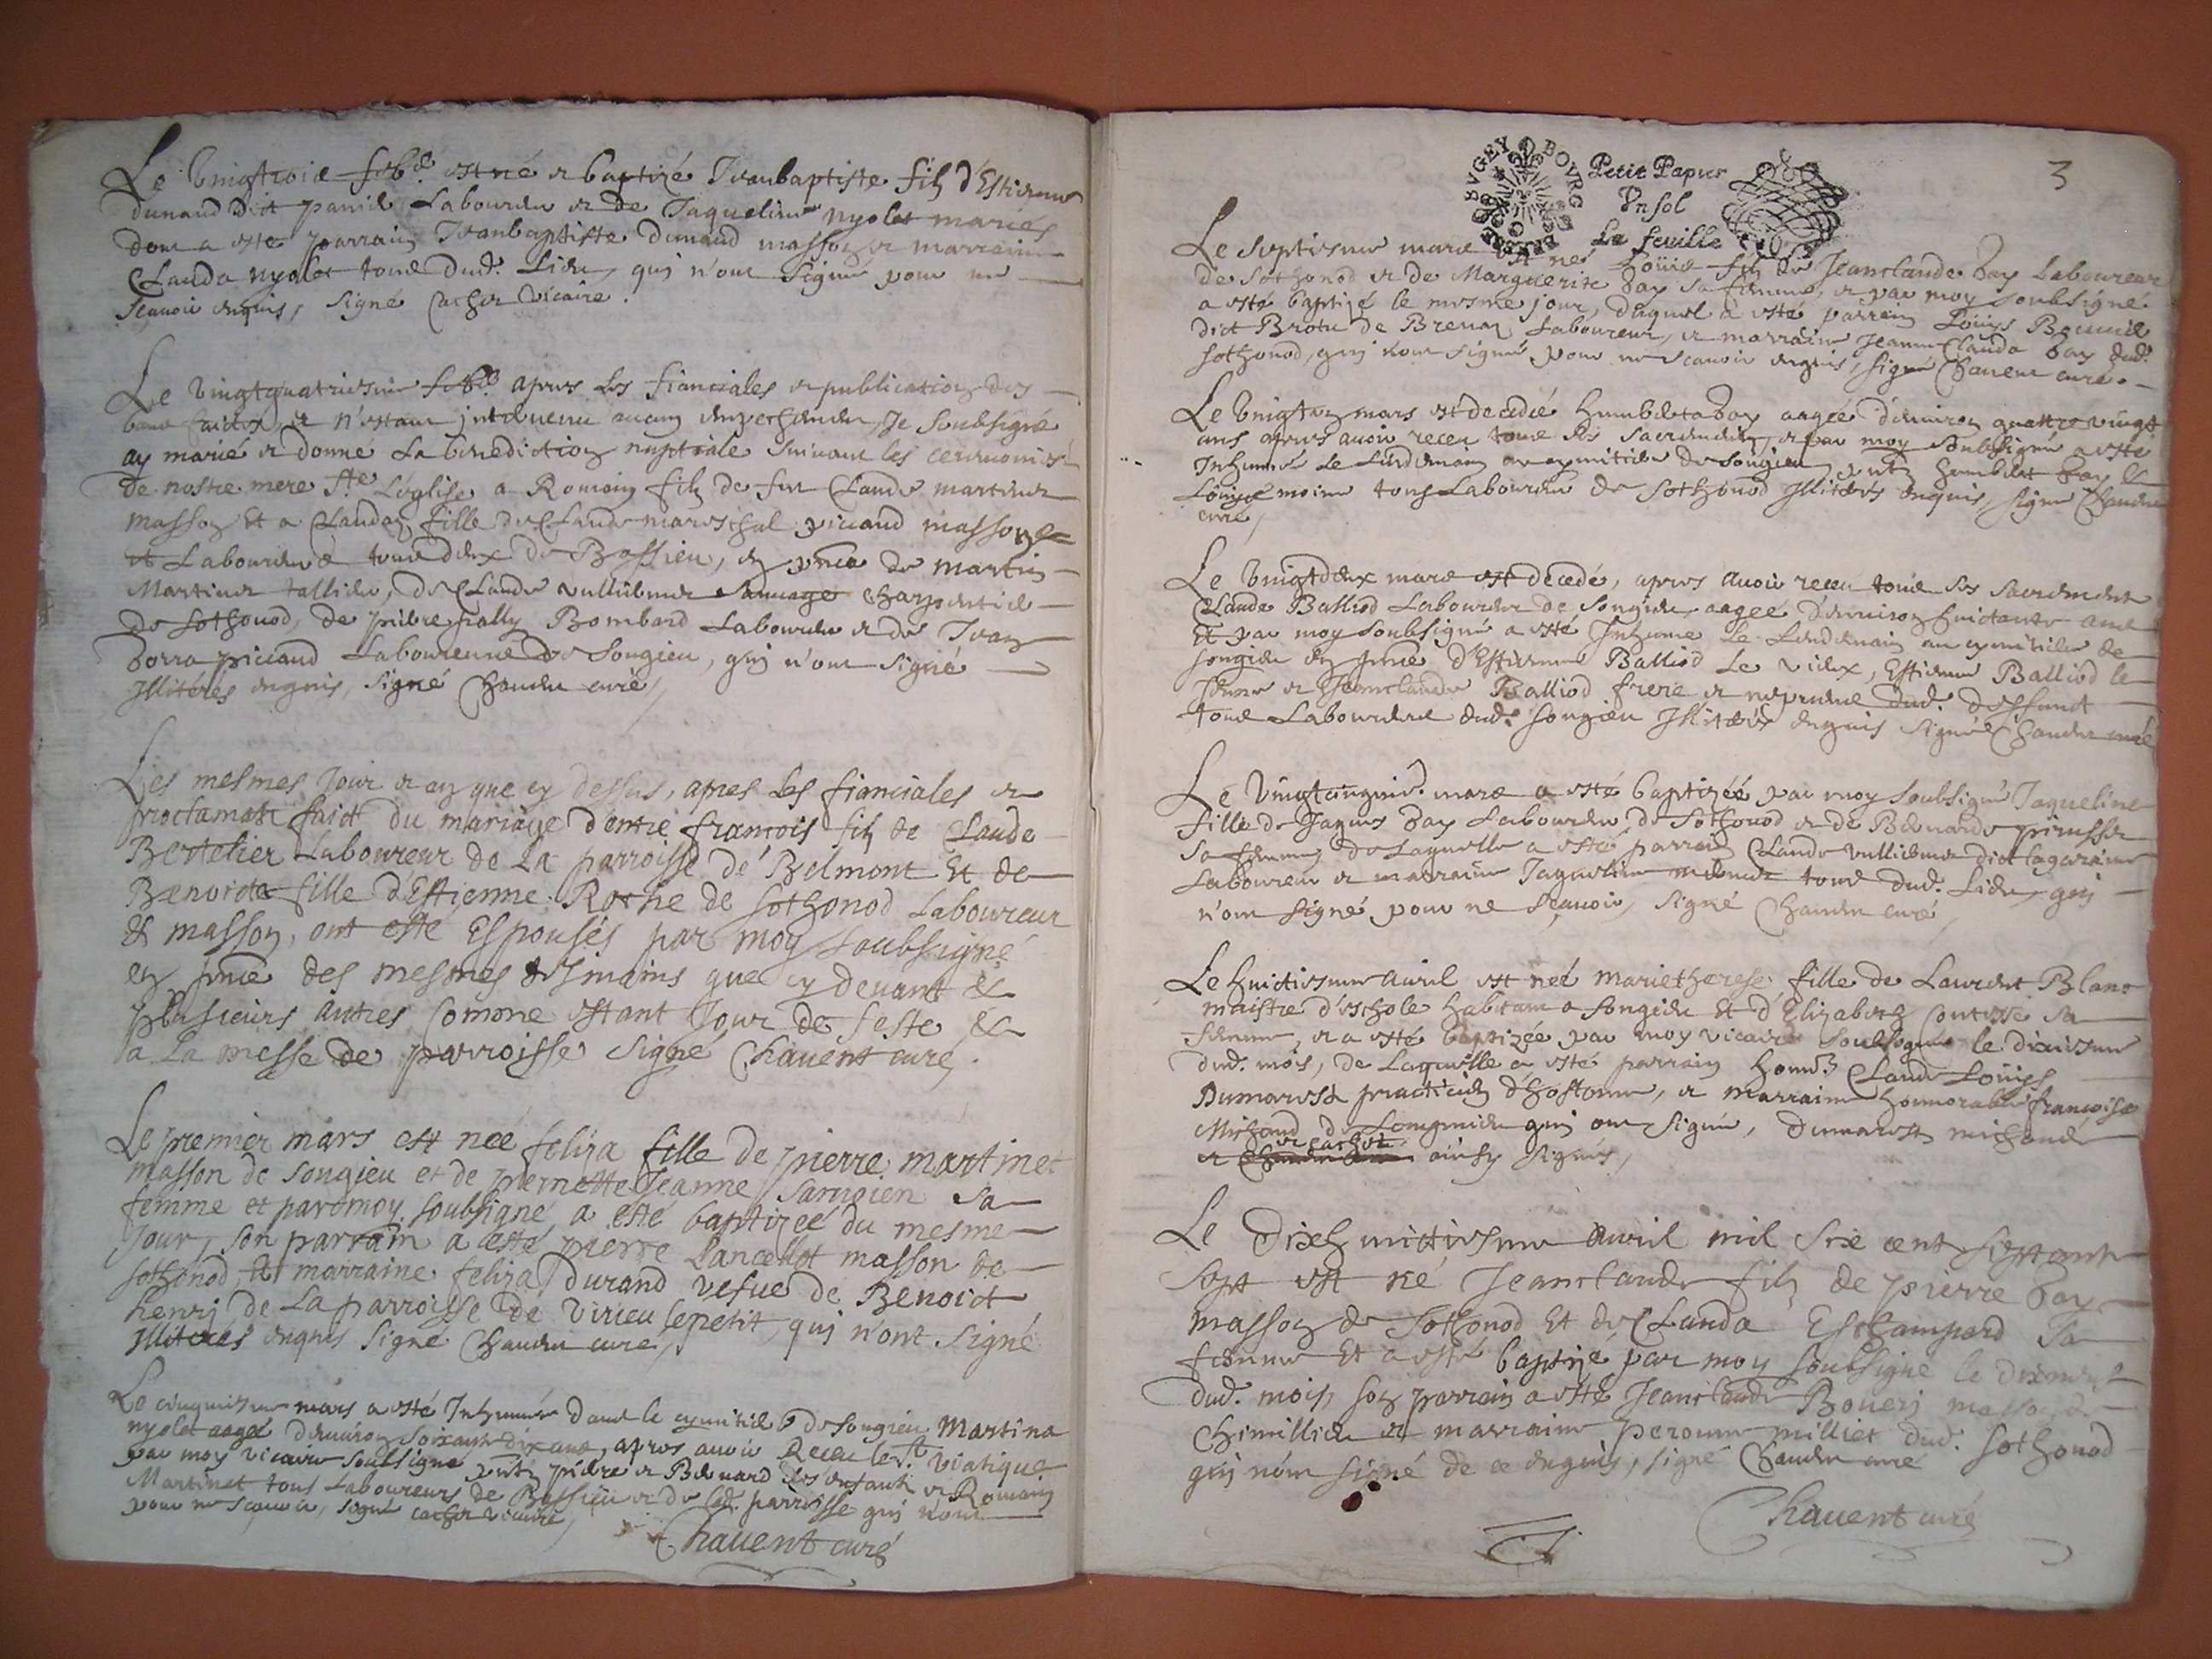 Le vingtrois feb. est né et baptizé Jeanbaptiste filz d'Estienne
dunand dict parnil Laboureur et de Jaqueline nyolet mariés
dont a esté parrain Jeanbaptiste dunand masson et marraine
Clauda nyolet tous dud. Lieu, qui n'ont signé pour ne
scavoir enquis, signé Cacher vicaire.
Le vingtquatriesme feb. apres les fianciales et publication des
bans faictes, et n'estant intervenu aucun empeschement, Je soubsigné
ay marié et donné La benediction nuptiale suivant les ceremonies
de nostre mere Ste L'église a Romain filz de feu Claude martinet
masson et a Claudaz fille de Claude mareschal picaud masson
et Laboureurs tous deux de Bassieu, en pnce de martin
Martinet tallieur, de Claude vulliemes sauvage charpentier
de Sothonod, de pierre pally Bombard Laboureur et de Jean
borra piccaud Laboureur de Songieu, qui n'ont signé
Illiterés enquis, signé Chauent curé
Les mesmes Jour et an que cy dessus, apres les fianciales et
proclamatz faict du mariage d'entre françois filz de Claude
Bertelier Laboureur de La parroisse de Belmont Et de
Benoicte fille d'Estienne Roche de sothonod Laboureur
& masson, ont esté Espousés par moy soubsigné
en pnce des mesmes tesmoins que cy devant &
plusieurs autres comme estant Jour de feste &
a La messe de parroisse signé Chauent curé.
Le premier mars est neé feliza fille de pierre martinet
masson de songieu et de pernette Jeanne Sarugien sa
femme et par moy soubsigné a esté baptizeé du mesme
Jour, son parrain a esté pierre Lancellot masson de
sothonod, et marraine feliza durand vesue de Benoict
henri de La parroisse de virieu lepetit, qui n'ont signé
Illiterés enquis signé Chauent curé
Le cinquiesme mars a esté Inhumée dans le cymitiere de songieu Martina
nyolet aagee denviron soixante dix ans, apres avoir Receu le St viatique
par moy vicaire soubsigné pnts pierre et Bernard ses enfants et Romain
Martinet tous Laboureurs de Bassieu et de lad. parroisse qui n'ont
pour ne scavoir, signé cacher vicaire,
Chauent curé
BRESSE BVGEY BOVRG
Petit Papier
Vn sol
La feuille
3
Le septiesme mars est né Loüis filz de Jeanclaude bay Laboureur
de Sothonod et de Marguerite bay sa femme, et par moy soubsigné
a esté baptizé le mesme jour, duquel a esté parrain Loüis
dict Brotu de Brenaz Laboureur, et marraine Jeanne Clauda bay dud.
sothonod, qui n'ont signé pour ne scavoir enquis, signé Chauent curé.
Le vingt mars est decedeé humberta bay aageé d'environ quattre vingt
ans apres avoir receu tous les sacrements, et par moy soubsigné a esté
Inhumée Le Lendemain au cymitiere de songieu pnts humbert bay &
Loüys moine tous Laboureurs de Sothonod Illiterés enquis, signé Chauent
curé,
Le vingtdeux mars est decedé, apres avoir receu tous ses sacrements
Claude Balliod Laboureur de Songieu aageé d'environ huictante ans
Et par moy soubsigné a esté Inhumé Le Lendemain au cymitiere de
songieu en pnce d'Estienne Balliod Le vieux, Estienne Balliod le
Jeune et Jeanclaude Balliod frere et nepveux dud. deffunct
tous Laboureurs dud. songieu Illiterés enquis signé Chauent curé
Le Vingtcinquie. mars a esté baptizeé par moy soubsigné Jaqueline
fille de Jaques bay Laboureur de Sothonod et de Bernarde
sa femme, de Laquelle a esté parrain Claude vulliemes dict
Laboureur et marraine Jaqueline tous dud. Lieu, qui
n'ont signé pour ne sçavoir, signé Chauent curé,
Le huictiesme avril est neé marietherese fille de Laurent Blanc
maistre d'eschole habitant a songieu Et d'Elizabeth sa
femme, et a esté baptizée par moy vicaire soubsigné le dixiesme
dud. mois, de Laquelle a esté parrain hon. Claude Loüys
Dumarest practicien d'hostonne, et marraine honnorable françoise
Michaud de qui ont signé, dumarest michaud
et cacher ainsy signés,
Le Dixhuictiesme avril mil six cent septante
sept est né Jeanclaude filz de pierre bay
masson de Sothonod Et de Clauda Eschampard sa
femme Et a esté baptizé par moy soubsigné le
dud. mois, son parrain a esté Jeanclaude Boueri masson de
Chimillieu et marraine peronne milliet dud. sothonod
qui n'ont signé de ce enquis, signé Chauent curé
Chauent curé